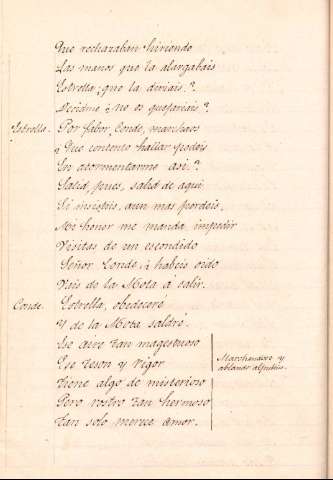 Que rechazaban hiriendo
Las manos que la alargabais
Estrella ¿que la diriais?
Decidme ¿No os quejariais?
Estrella. Por favor, Conde, marchaos
¿Que contento hallar podeis
En atormentarme asi?
Salid, pues, salid de aqui
Si insistis, aun mas perdeis,
Mi honor me manda impedir
Visitas de un escondido
Señor Conde ¿habeis oido
Vais de la Mota á salir.
Conde. Estrella, obedeceré
Y de la Mota saldré.
Ese aire tan magestuoso
Ese teson y vigor
Tiene algo de misterioso
Pero rostro tan hermoso
Tan solo merece amor.
Marchandose y
hablando al público.